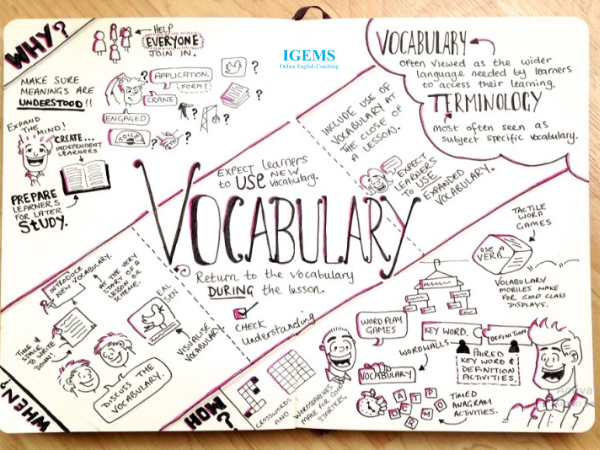 WHY?
HELP
EVERYONE
JOIN IN.
MAKE SURE
MEANINGS ARE
UNDERSTOOD!!
APPLICATION
FORM?
CRANE
ENGAGED
?
?
?
?
?
EXPAND
THE MIND!
CREATE...
INDEPENDENT
LEARNERS
PREPARE
LEARNERS
FOR LATER
STUDY.
IGEMS
Online English Coaching
VOCABULARY
Often viewed as the wider
language needed by learners
to access their learning.
TERMINOLOGY
Most often seen as
subject specific vocabulary.
INCLUDE USE OF
VOCABULARY AT
THE CLOSE OF
A LESSON.
EXPECT
LEARNERS
TO USE
EXPANDED
VOCABULARY.
EXPECT learners
to USE NEW
vocabulary.
VOCABULARY
Return to the vocabulary
DURING the lesson.
CHECK
Understanding
INTRODUCE
NEW VOCABULARY.
AT THE VERY
START OF A
LESSON OR
SCHEME.
TIME &
SPACE
TO WRITE
DOWN!
EAL
SEN
VISUALISE
VOCABULARY
DISCUSS THE
VOCABULARY.
WHEN?
HOW
?
CROSSWORDS
AND
WORDSEARCHES
MAKE FOR GOOD
STARTERS.
TACTILE
WORD
GAMES
USE A
VERB...
VOCABULARY
MOBILES MAKE
FOR GOOD CLASS
DISPLAYS.
WORD PLAY
GAMES
KEY WORD.
DEFINITION
WORDWALLS
VOCABULARY
PAIRED
KEY WORD &
DEFINITION
ACTIVITIES.
TIMED
ANAGRAM
ACTIVITIES.